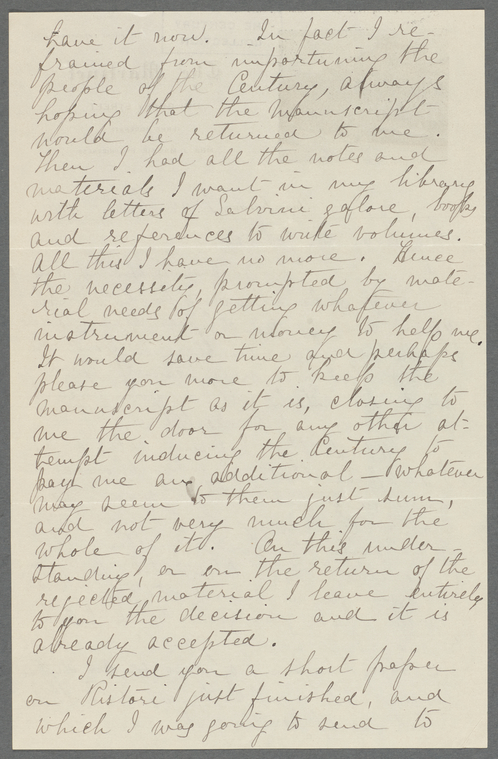 have it now. In fact I re-
frained from importuning the
people of the Century, always
hoping that the manuscript
would be returned to me.
Then I had all the notes and
materials I want in my library
with letters of Salvini galore, books
and references to write volumes.
All this I have no more. Hence
the necessity, prompted by mate-
rial needs of getting whatever
instrument or money to help me.
It would save time and perhaps
please you more to keep the
manuscript as it is, closing to
me the door for any other at-
tempt inducing the Century to
pay me an additional - whatever
may seem to them just sum,
and not very much for the
whole of it. On this under-
standing, or on the return of the
rejected material I leave entirely
to you the decision and it is
already accepted.
I send you a short paper
on Ristori just finished, and
which I was going to send to